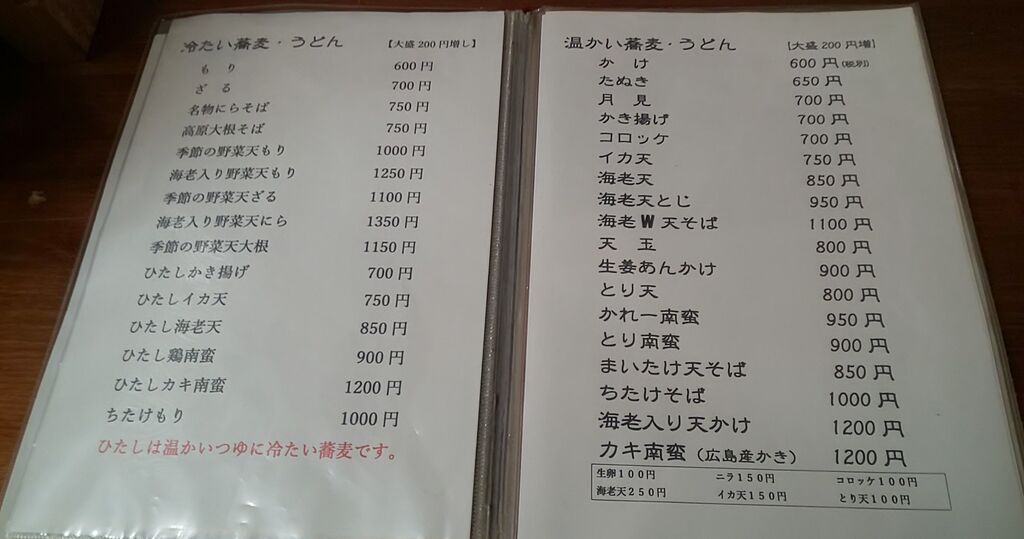 冷たい蕎麦・うどん 【大盛200円増し】
もり 600円
ざる 700円
名物にらそば 750円
高原大根そば 750円
季節の野菜天もり 1000円
海老入り野菜天もり 1250円
季節の野菜天ざる 1100円
海老入り野菜天にら 1350円
季節の野菜天大根 1150円
ひたしかき揚げ 700円
ひたしイカ天 750円
ひたし海老天 850円
ひたし鶏南蛮 900円
ひたしカキ南蛮 1200円
ちたけもり 1000円
ひたしは温かいつゆに冷たい蕎麦です。
温かい蕎麦・うどん [大盛200円増]
かけ 600円(税別)
たぬき 650円
月見 700円
かき揚げ 700円
コロッケ 700円
イカ天 750円
海老天 850円
海老天とじ 950円
海老W天そば 1100円
天玉 800円
生姜あんかけ 900円
とり天 800円
かれー南蛮 950円
とり南蛮 900円
まいたけ天そば 850円
ちたけそば 1000円
海老入り天かけ 1200円
カキ南蛮(広島産かき) 1200円
生卵100円 ニラ150円 コロッケ100円
海老天250円 イカ天150円 とり天100円